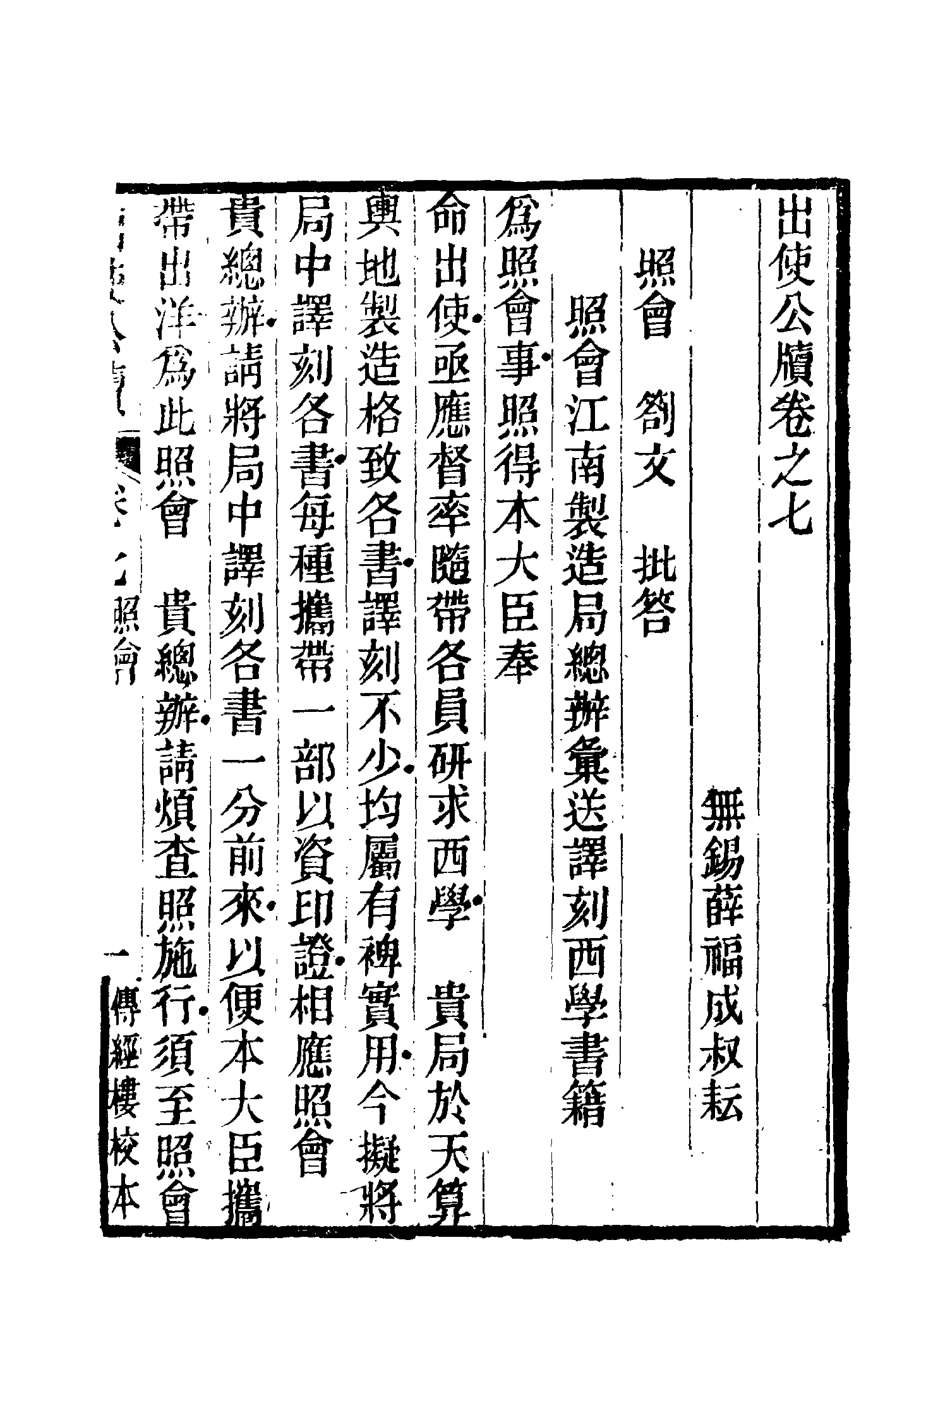 出使公牘卷之七
無錫薛福成叔耘
照會　劄文　批答
照會江南製造局總辦彙送譯刻西學書籍
爲照會事照得本大臣奉
命出使亟應督率隨帶各員研求西學　貴局於天算
輿地製造格致各書譯刻不少均屬有裨實用今擬將
局中譯刻各書每種攜帶一部以資印證相應照會
貴總辦請將局中譯刻各書一分前來以便本大臣攜
帶出洋爲此照會　貴總辦請煩查照施行須至照會
照會
一
傳經樓校本